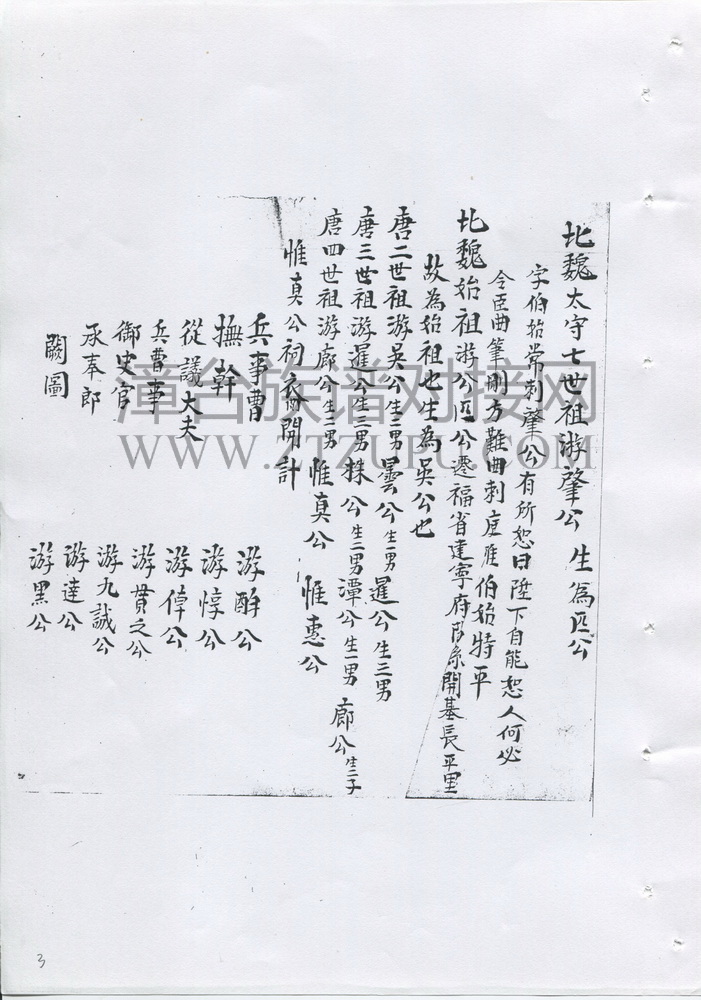 北魏太守七世祖游肇公 生為匹公
字伯始常刺肇公有所恕曰陞下自能恕人何必
令臣曲筆刪方難曲刺庭 伯始特平
北魏始祖游公匹公遷福省建寧府 開基長平里
故為始祖也生為吳公也
唐二世祖游吳公生二男曇公生一男暹公生三男
唐三世祖游暹公生三男株公生二男潭公生一男 廊公生二子
唐四世祖游廊公生二男 惟真公 惟惠公
惟真公祠衣 開計
兵事曹 游酢公
撫幹 游惇公
從議大夫 游偉公
兵曹事 游貫之公
御史官 游九誠公
承奉郎 游達公
闕圖 游黑公
漳台族谱对接网
WWW.ZTZUPU.COM
3